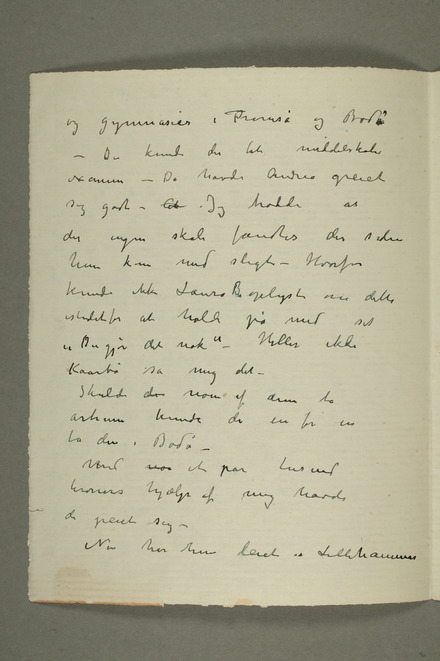 og gymnasier i Tromsø og Bodø"
– Da kunde de tat middelskole
examen – Da havde Andrea greiet
sig godt – Jeg trodde at
der ingen skole fandtes der siden
hun kom med slegt – Hvorfor
kunde ikke Laura B oplyst om dette
istedetfor at holde på med sit
"Bu gjør det nok" – Heller ikke
Kaarbø sa mig det –
Skulde noen af dem ta
artium kunde de en for en
ta den i Bodø –
Med et par tusind
kroners hjælp af mig havde
de greiet sig –
Nu har hun leiet Lillehammer